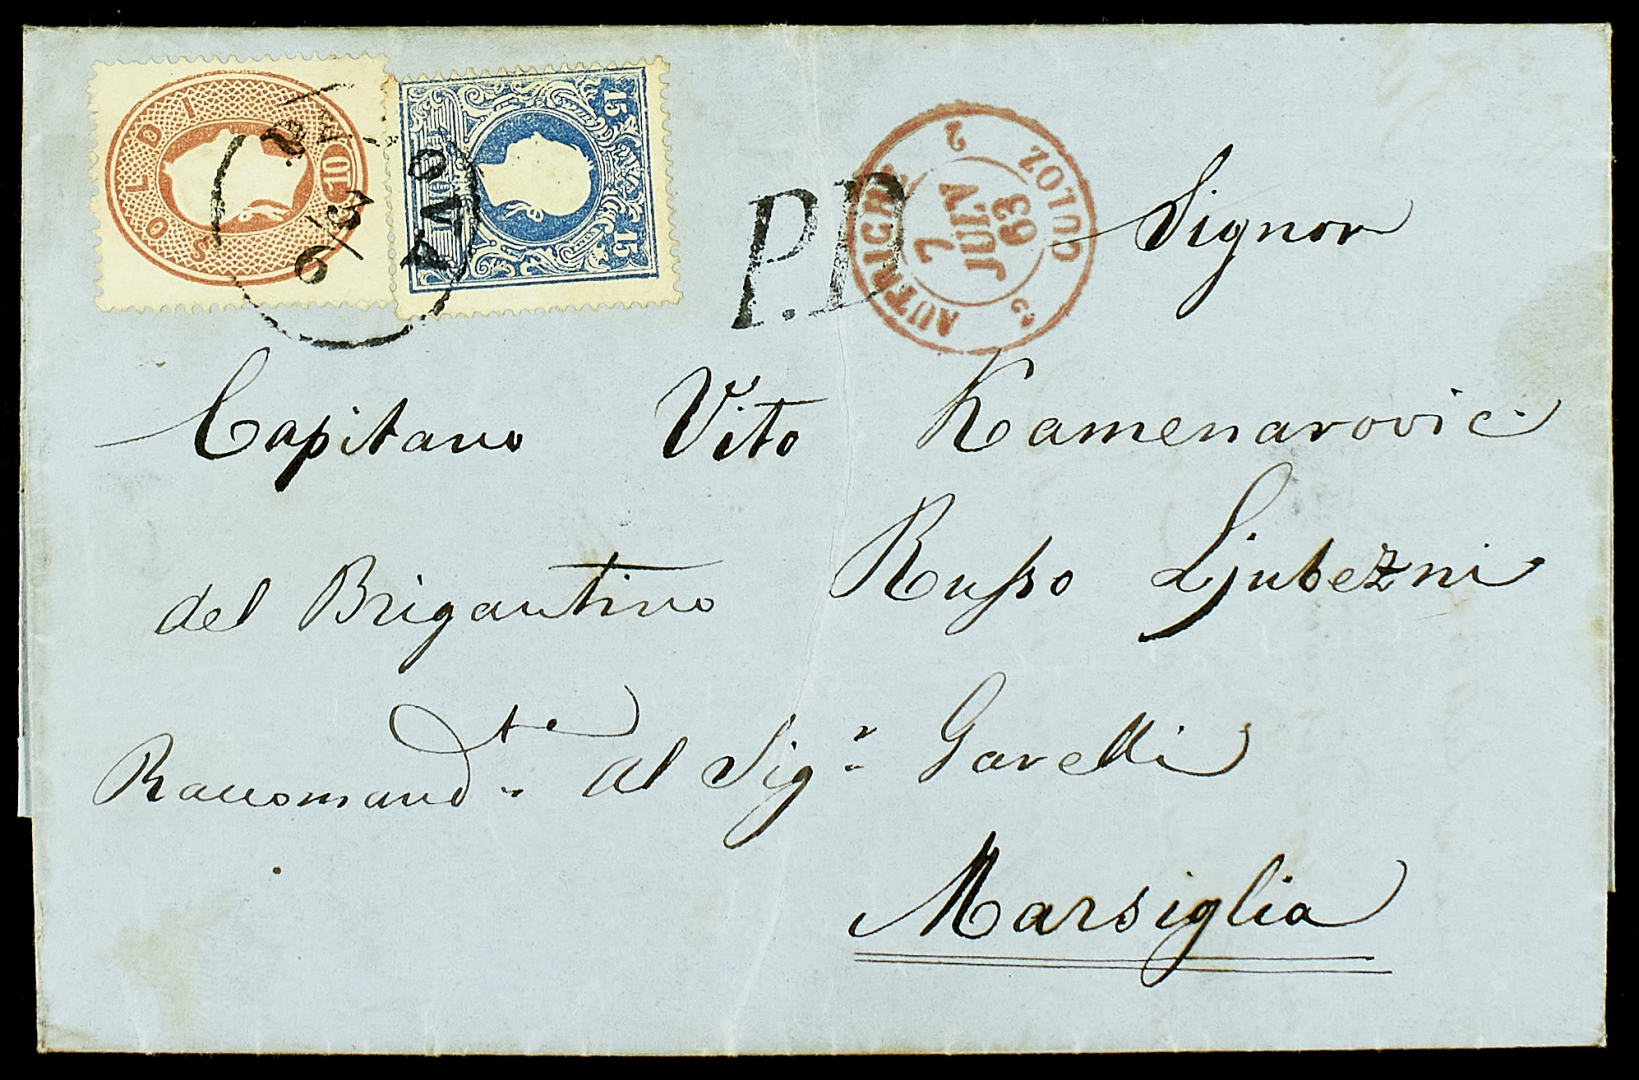 10 SOLDI
15 15
P.D.
2 AUTRICHE 2 CULOZ
7 JUIN 63
Signor
Capitano Vito Kamenarovic
del Brigantino Russo Ljubezni
Raccomand.te al Sig.r Garelli
Marsiglia